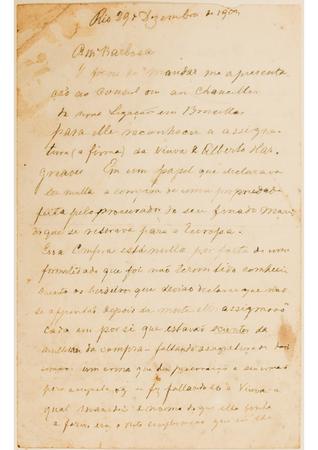 Rio 29 Dezembro de 190
Am Barbosa
favor de mandar me a presenta
ção ao Consul ou ao Chanceller
da nossa Legação em Bruxellas
para elle reconhecer a assigna
tura (a firma) da Viuva de Alberto Har
greaves Em um papel que declarava
ser nulla a compra de uma propriedade
feita pelo procurador do seu finado mari
do que se retirava para a Europa.
Essa Compra está nulla por falta de uma
formalidade que foi não terem tido conheci
mento os herdeiros que devião declarar que não
se oppunhão depois da morte elles assignarão
cada um por si que estavão scientes da
nullidade da compra - faltando assignatura de
irmão uma irmã que deu procuração a seu irmão
para faltando só a Viuva a
qual mandei o nome do que ella tinha
a fazer era o reto que